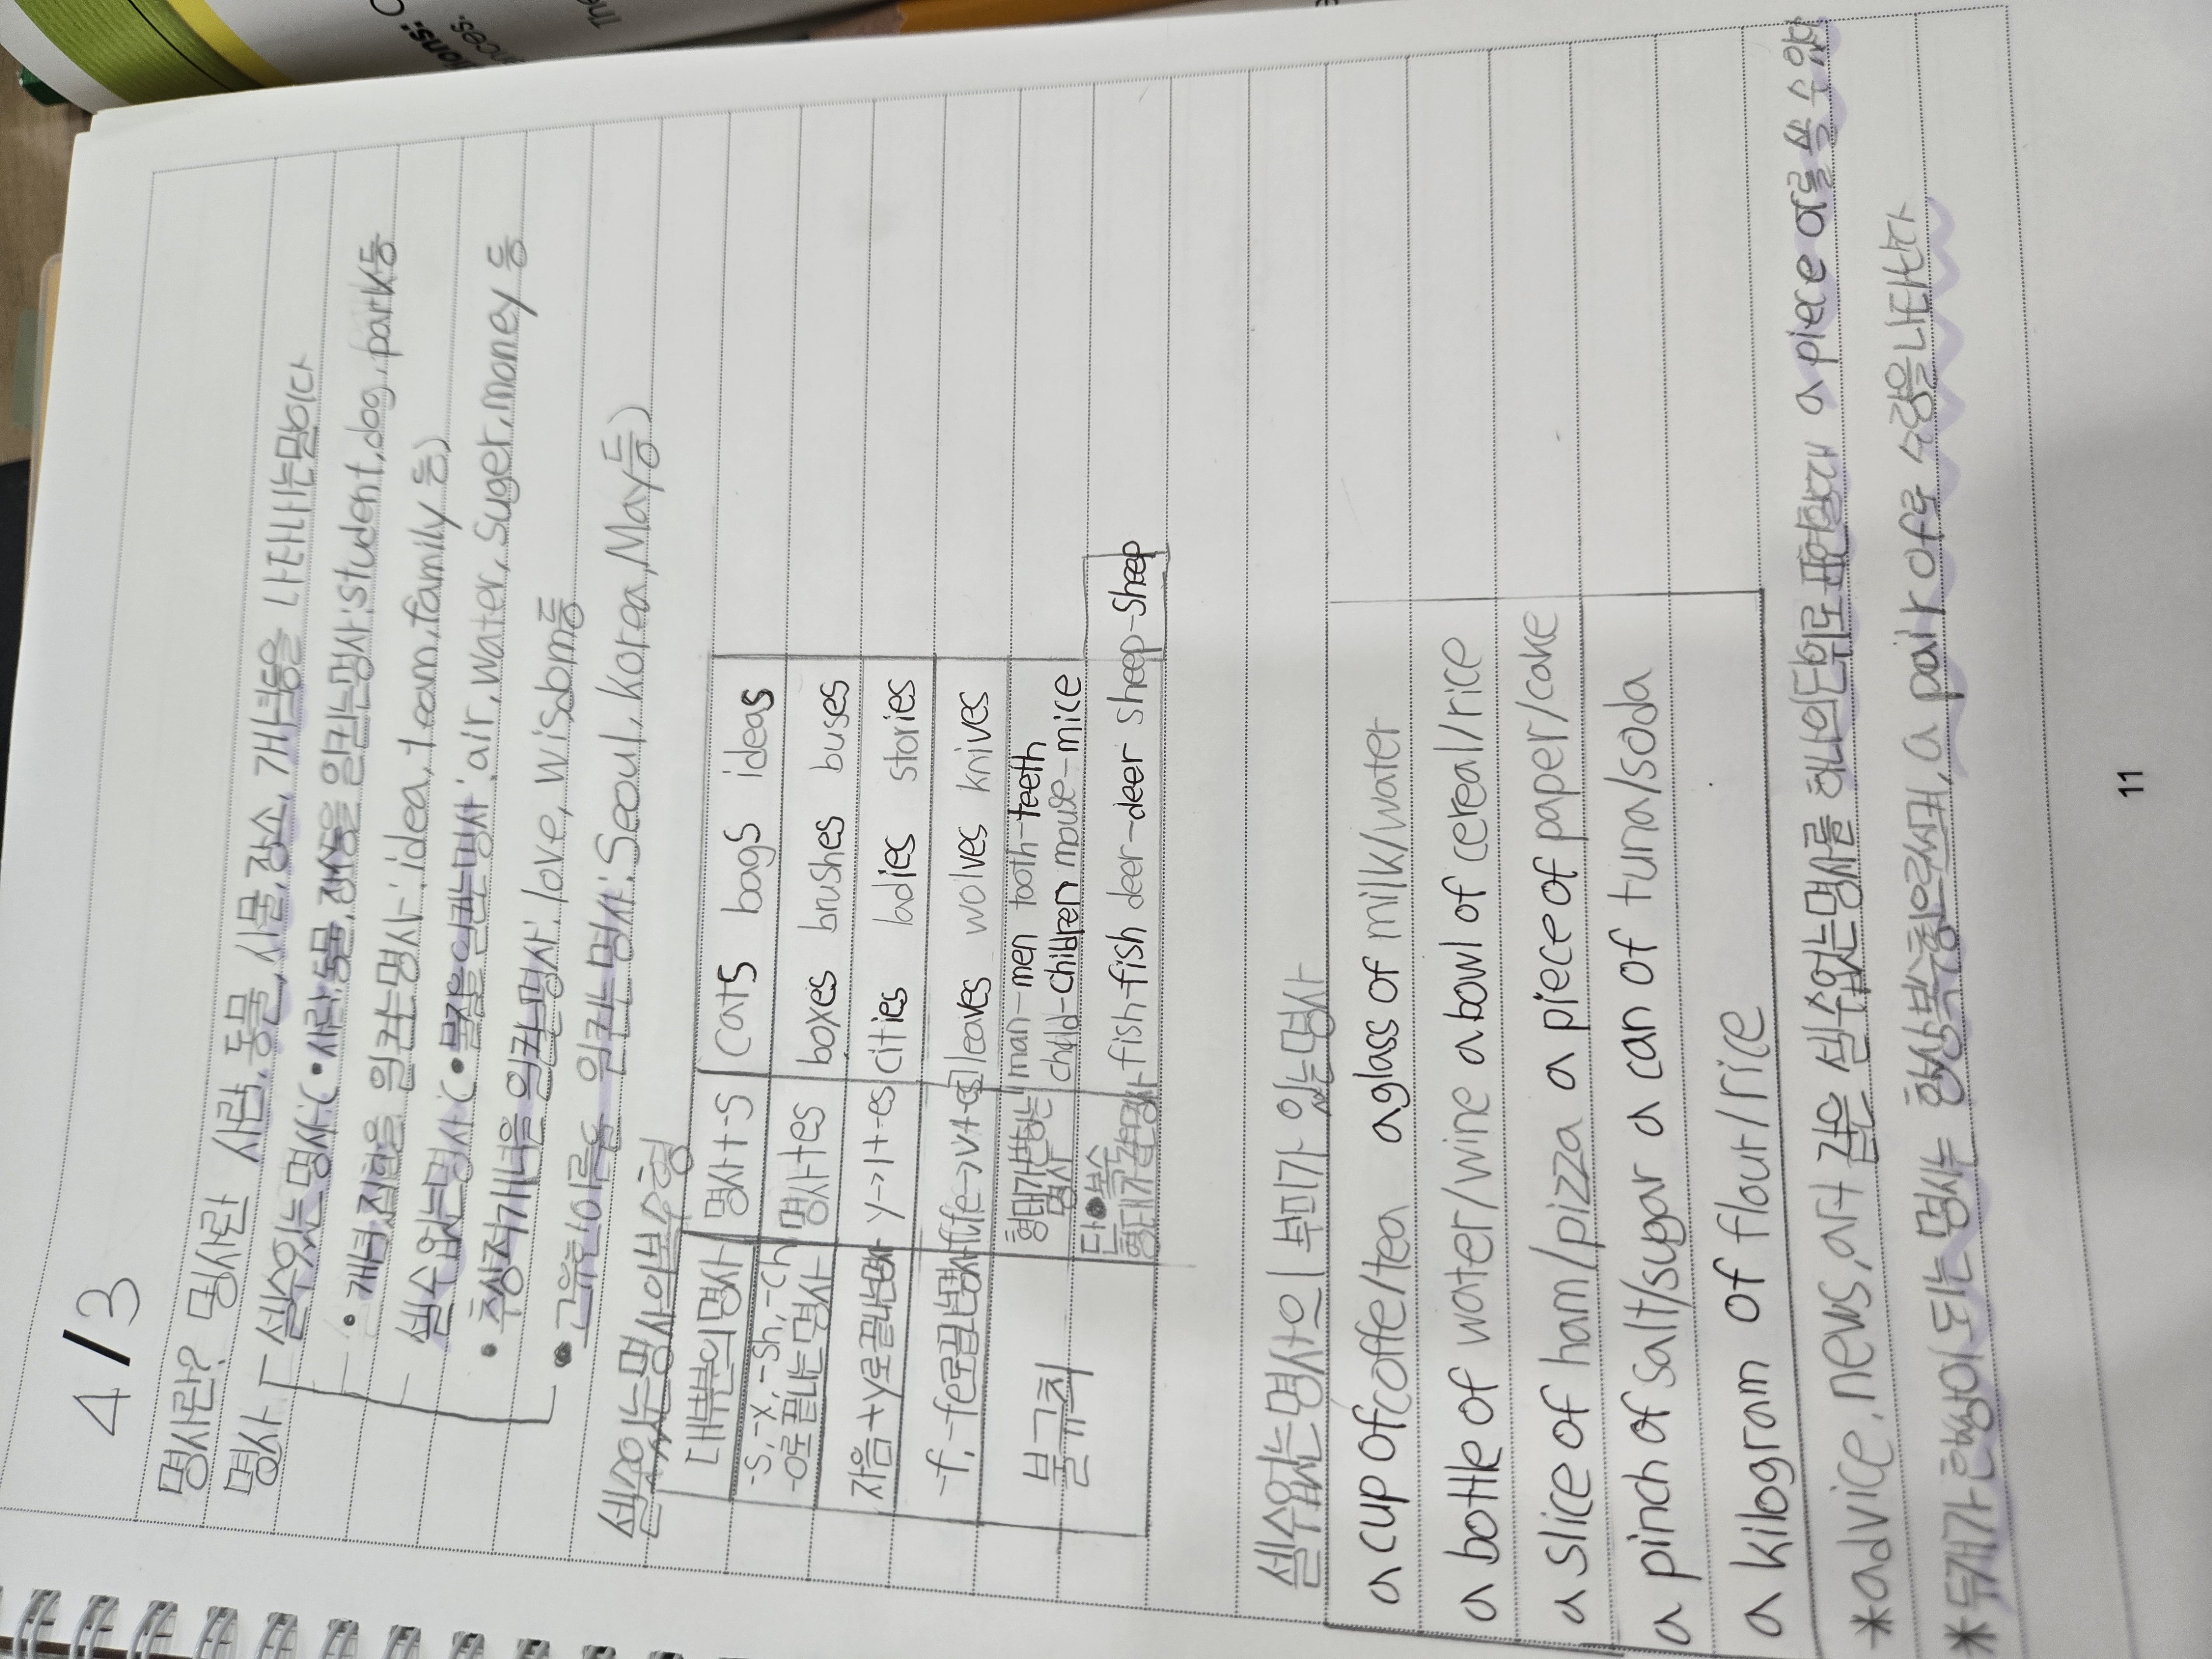 4/3
명사란? 명사란 사람, 동물, 사물, 장소, 개념등을 나타내는말이다
명사
셀수있는명사:(•사람,동물,장소등을 일컫는명사:student,dog,park등
•개념,집합을 일컫는명사:idea,team,family 등)
셀수없는명사:(•물질을일컫는명사:air,water,suger,money 등
•추상적개념을 일컫는명사:love, wisdom등
•고유한이름을 일컫는명사:Seoul,Korea,May등)
셀수있는명사의복수형
대부분의명사 명사+-s cats bags ideas
-s,-x,-sh,-ch
-o로끝나는명사 명사+es boxes brushes buses
자음+y로끝나는명사 y→i+-es cities ladies stories
-f,-fe로끝나는명사 f,fe→v+-es leaves wolves knives
불규칙
형태가변하는
명사
man-men tooth-teeth
child-children mouse-mice
단•복수
형태가같은명사 fish-fish deer-deer sheep-sheep
셀수없는명사의 부피가 있는명사
a cup of coffe/tea a glass of milk/water
a bottle of water/wine a bowl of cereal/rice
a slice of ham/pizza a piece of paper/cake
a pinch of salt/sugar a can of tuna/soda
a kilogram of flour/rice
*advice,news,art 같은 셀수없는명사를 하나의단위로표현할때 a piece of를 쓸 수 있다
*두개가 한쌍이 되는 명사는 항상복수형으로쓰며, a pair of로 수량을나타낸다
11
ions:
nces.
The